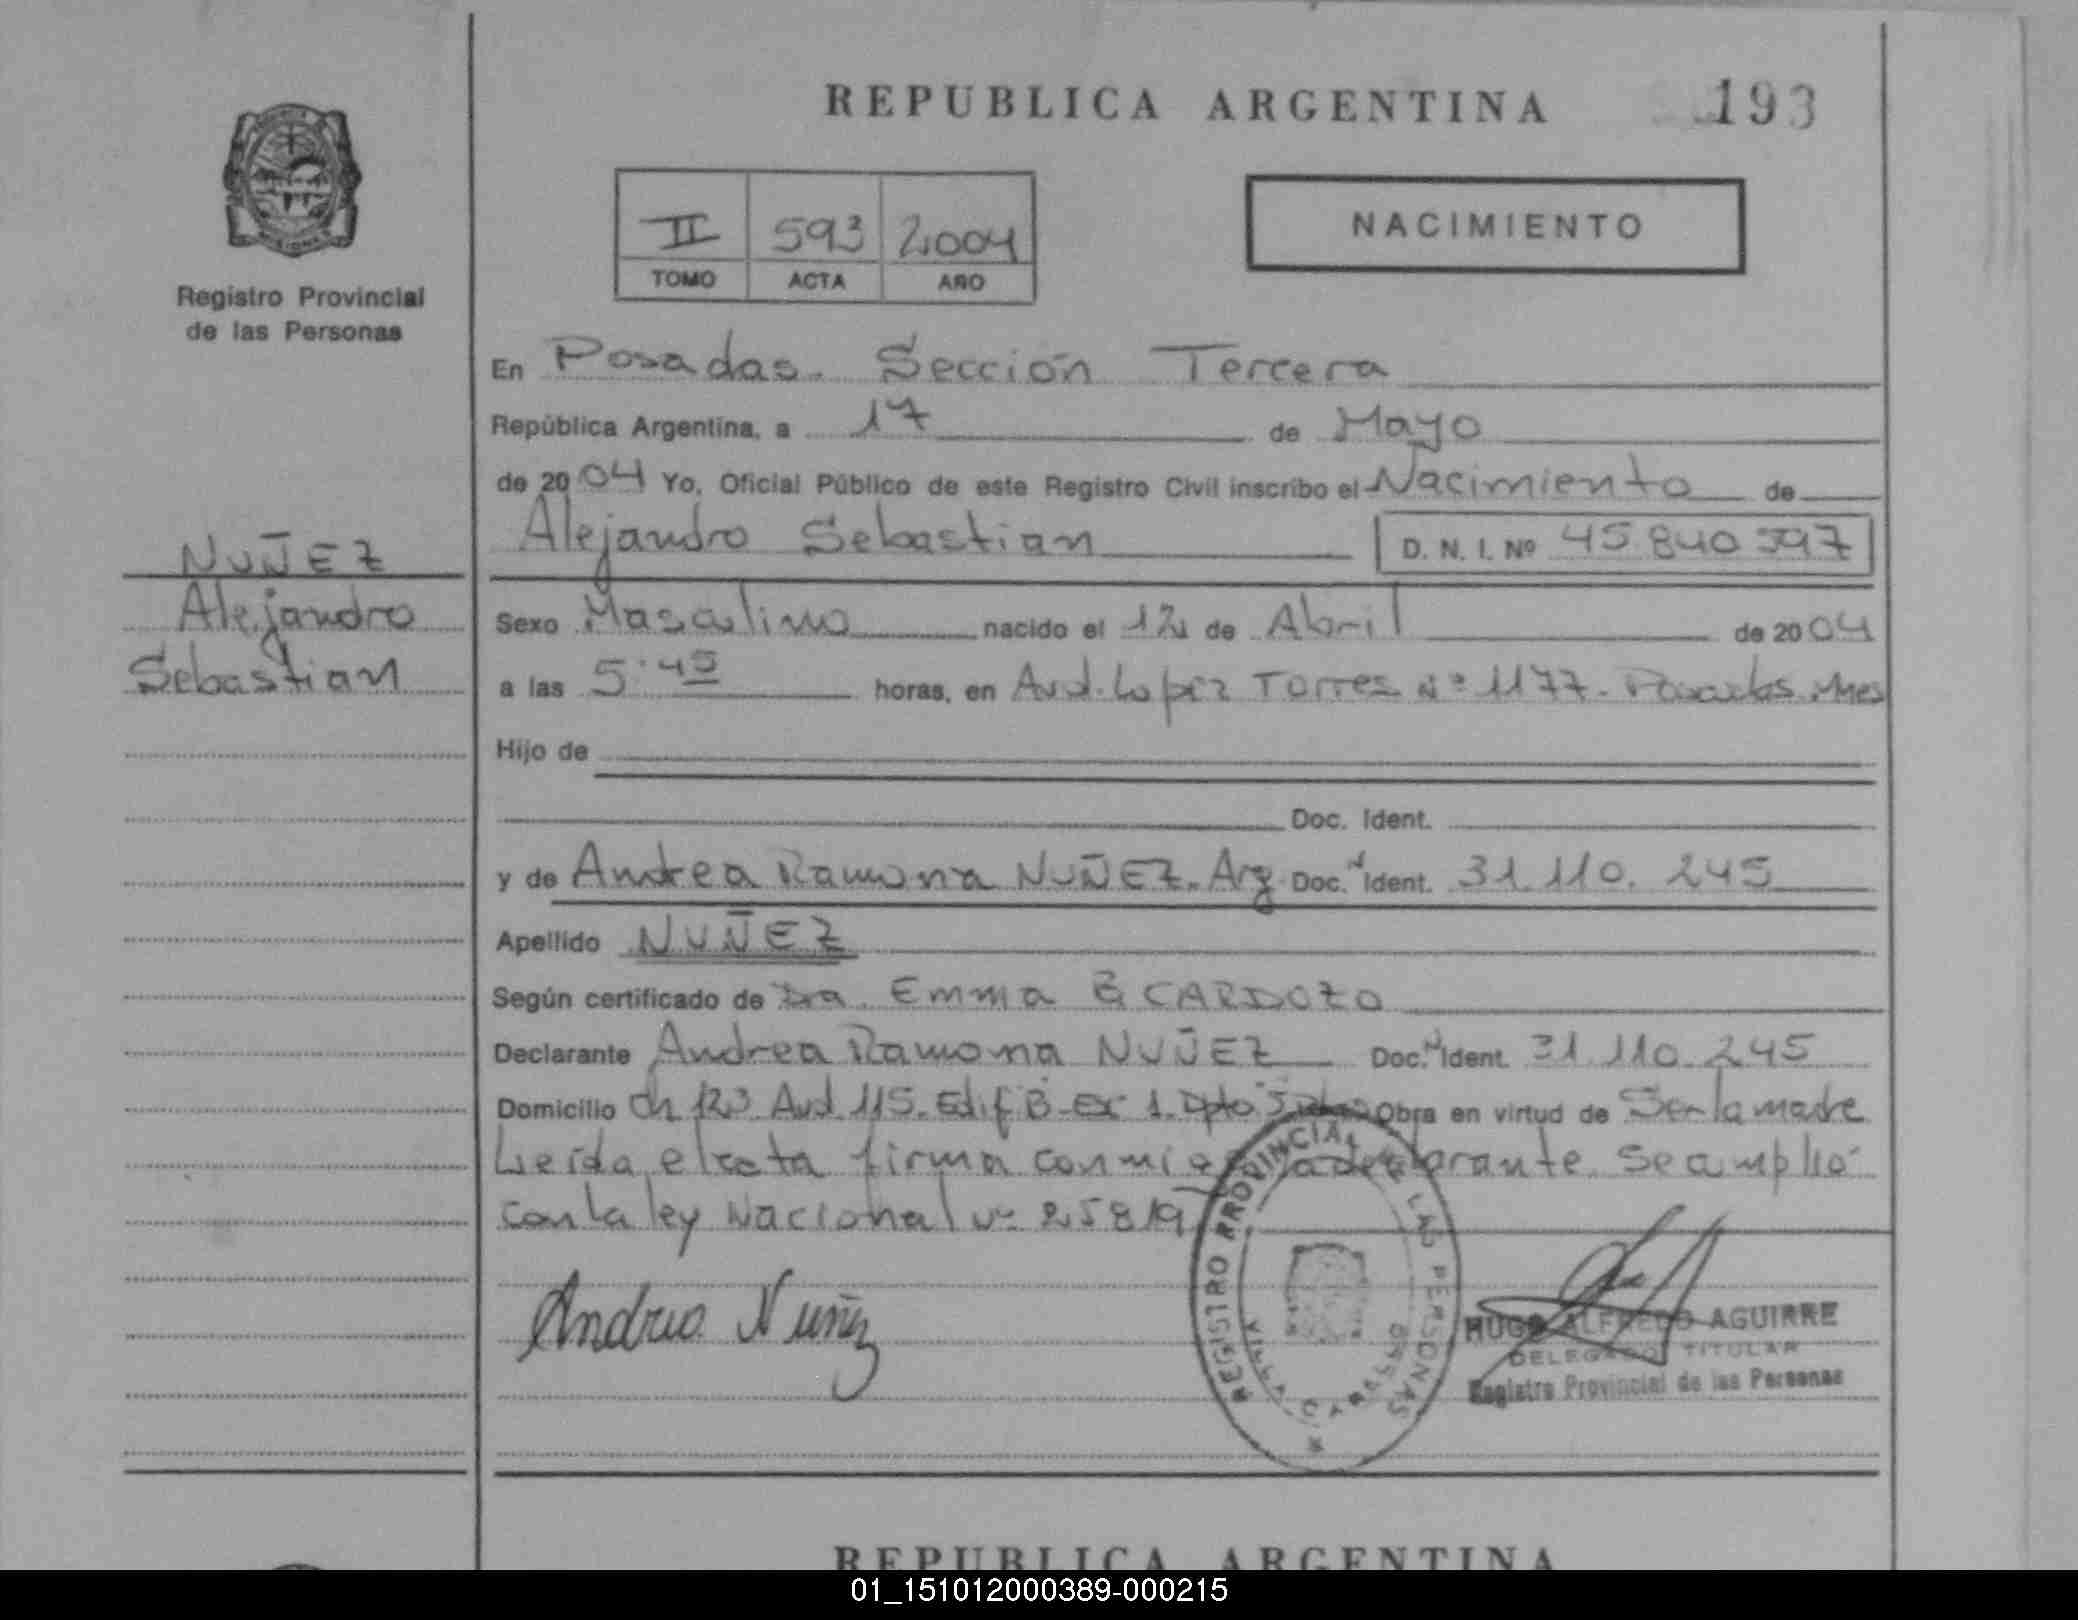 REPUBLICA ARGENTINA 193
NACIMIENTO
II 593 2004
TOMO ACTA AÑO
Registro Provincial
de las Personas
En Posadas. Sección Tercera
República Argentina, a 17 de Mayo
de 2004 Yo, Oficial Público de este Registro Civil inscribo el Nacimiento de
Alejandro Sebastian D. N. I. Nº 45.840.597
NUÑEZ
Alejandro
Sebastian
Sexo Masculino nacido el 12 de Abril de 2004
a las 5:45 horas, en Avd. Lopez Torres Nº 1177. Posadas. Mnes
Hijo de
Doc. Ident.
y de Andrea Ramona NUÑEZ. Arg Doc. Ident. 31.110.245
Apellido NUÑEZ
Según certificado de Dra. Emma CARDOZO
Declarante Andrea Ramona NUÑEZ Doc. Ident. 31.110.245
Domicilio Ch 123 Avd 115. Edif B Esc 1. Dpto Obra en virtud de Ser la madre
Leída el acta firma conmigo la declarante. Se amplió
con la ley Nacional Nº 25819
Andrea Nuñez
REGISTRO PROVINCIAL DE LAS PERSONAS
HUGO ALFREDO AGUIRRE
DELEGADO TITULAR
Registro Provincial de las Personas
REPUBLICA ARGENTINA
01_151012000389-000215